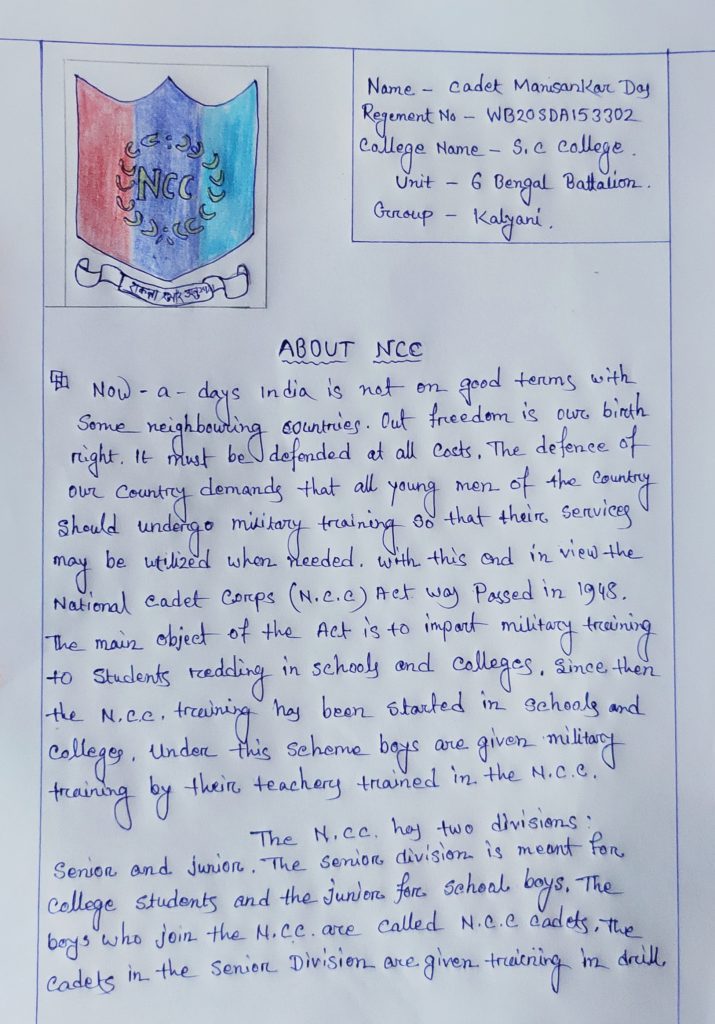 NCC
Name - Cadet Manisankar Das
Regement No - WB20SDA153302
College Name - S.C College.
Unit - 6 Bengal Battalion.
Group - Kalyani.
ABOUT NCC
Now-a-days India is not on good terms with
some neighbouring countries. Out freedom is our birth
right. It must be defended at all costs. The defence of
our country demands that all young men of the country
should undergo military training so that their services
may be utilized when needed. With this end in view the
National Cadet Corps (N.C.C) Act was Passed in 1948.
The main object of the Act is to impart military training
to students redding in schools and colleges. Since then
the N.C.C. training has been started in schools and
colleges. Under this scheme boys are given military
training by their teachers trained in the N.C.C.
The N.CC. has two divisions:
Senior and junior. The senior division is meant for
college students and the junior for school boys. The
boys who join the N.CC. are called N.C.C cadets. The
cadets in the Senior Division are given training in drill,